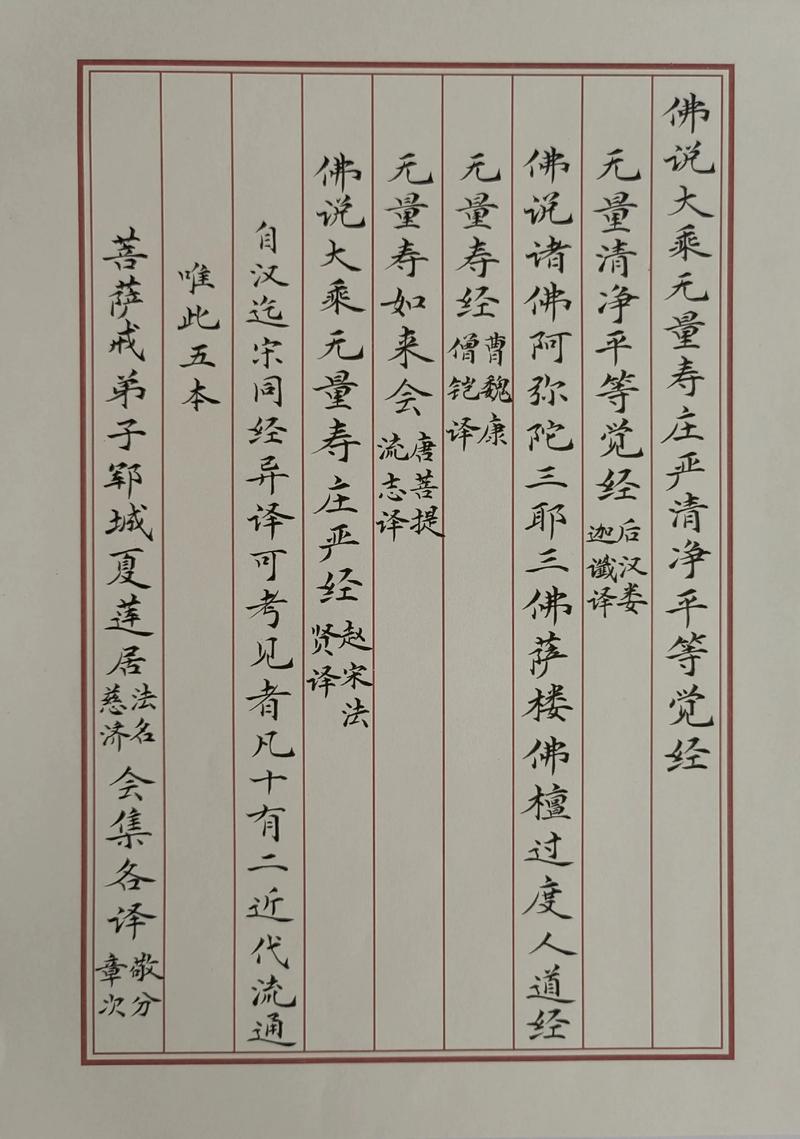 佛说大乘无量寿庄严清净平等觉经
无量清净平等觉经 后汉娄迦谶译
佛说诸佛阿弥陀三耶三佛萨楼佛檀过度人道经
无量寿经 曹魏康僧铠译
无量寿如来会 唐菩提流志译
佛说大乘无量寿庄严经 赵宋法贤译
自汉迄宋同经异译可考见者凡十有二近代流通
唯此五本
菩萨戒弟子郓城夏莲居 法名慈济 会集各译 敬分章次